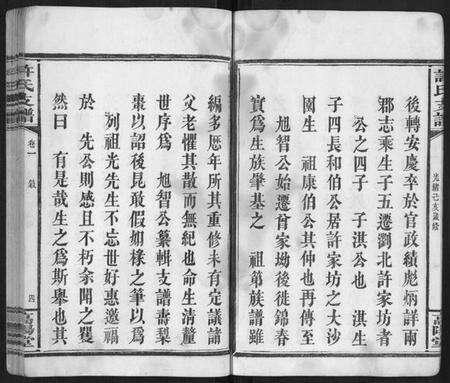 許氏支譜
光緒己亥歲修
高陽堂
後轉安慶卒於官政績彪炳詳兩
郡志乘生子五遷瀏北許家坊者
公之四子 子淇公也 淇生
子四長和伯公居許家坊之大沙
國生 祖康伯公其仲也再傳至
旭智公始遷曾家坳後徙錦春
實為生族肇基之 祖第族譜雖
編多歷年所其重修未有定議諸
父老懼其散而無紀也命生清釐
世序為 旭智公纂輯支譜壽梨
棗以詒後昆敢假如椽之筆以為
列祖光先生不忘世好惠邀福
於 先公則感且不朽余聞之矍
然曰 有是哉生之為斯舉也其
許氏支譜
卷一 敘
四
高陽堂